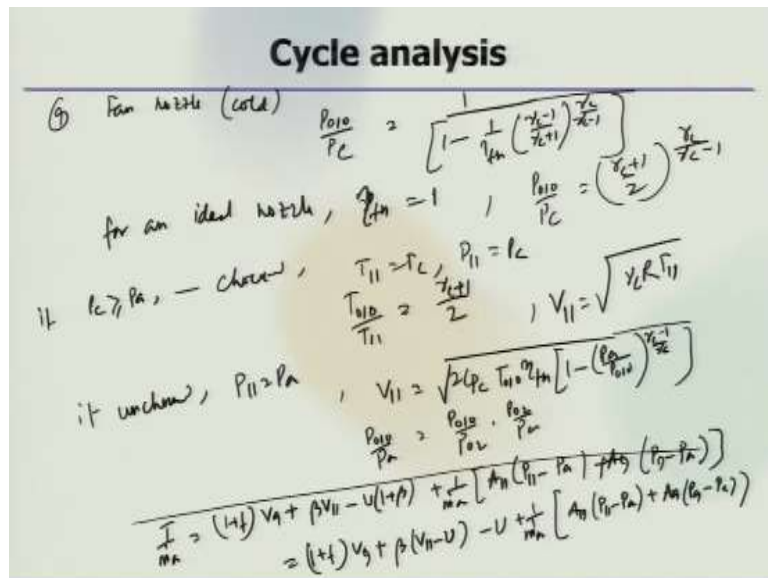 Cycle analysis
⑨ Fan nozzle (cold) P₀₁₀/P_c = 1/[1 − 1/η_fn ((γ_c−1)/(γ_c+1))^(γ_c/(γ_c−1))]
for an ideal nozzle, η_fn = 1, P₀₁₀/P_c = ((γ_c+1)/2)^(γ_c/(γ_c−1))
if P_c ⩾ P_a, — choked, T₁₁ = T_c, P₁₁ = P_c
T₀₁₀/T₁₁ = (γ_c+1)/2, V₁₁ = √(γ_c R T₁₁)
if unchoked, P₁₁ = P_a, V₁₁ = √(2 C_pc T₀₁₀ η_fn [1 − (P_a/P₀₁₀)^((γ_c−1)/γ_c)])
P₀₁₀/P_a = P₀₁₀/P₀₂ · P₀₂/P_a
T/ṁ_a = (1+f) V₉ + βV₁₁ − U(1+β) + 1/ṁ_a [A₁₁(P₁₁−P_a) + A₉(P₉−P_a)]
= (1+f) V₉ + β(V₁₁−U) − U + 1/ṁ_a [A₁₁(P₁₁−P_a) + A₉(P₉−P_a)]